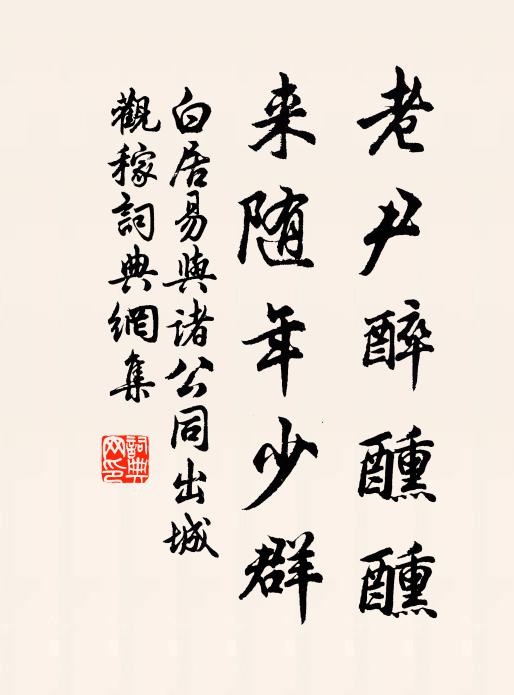 老尹醉醺醺
来随年少群
白居易與诸公同出城
觀稼詞典網集
詞典网印